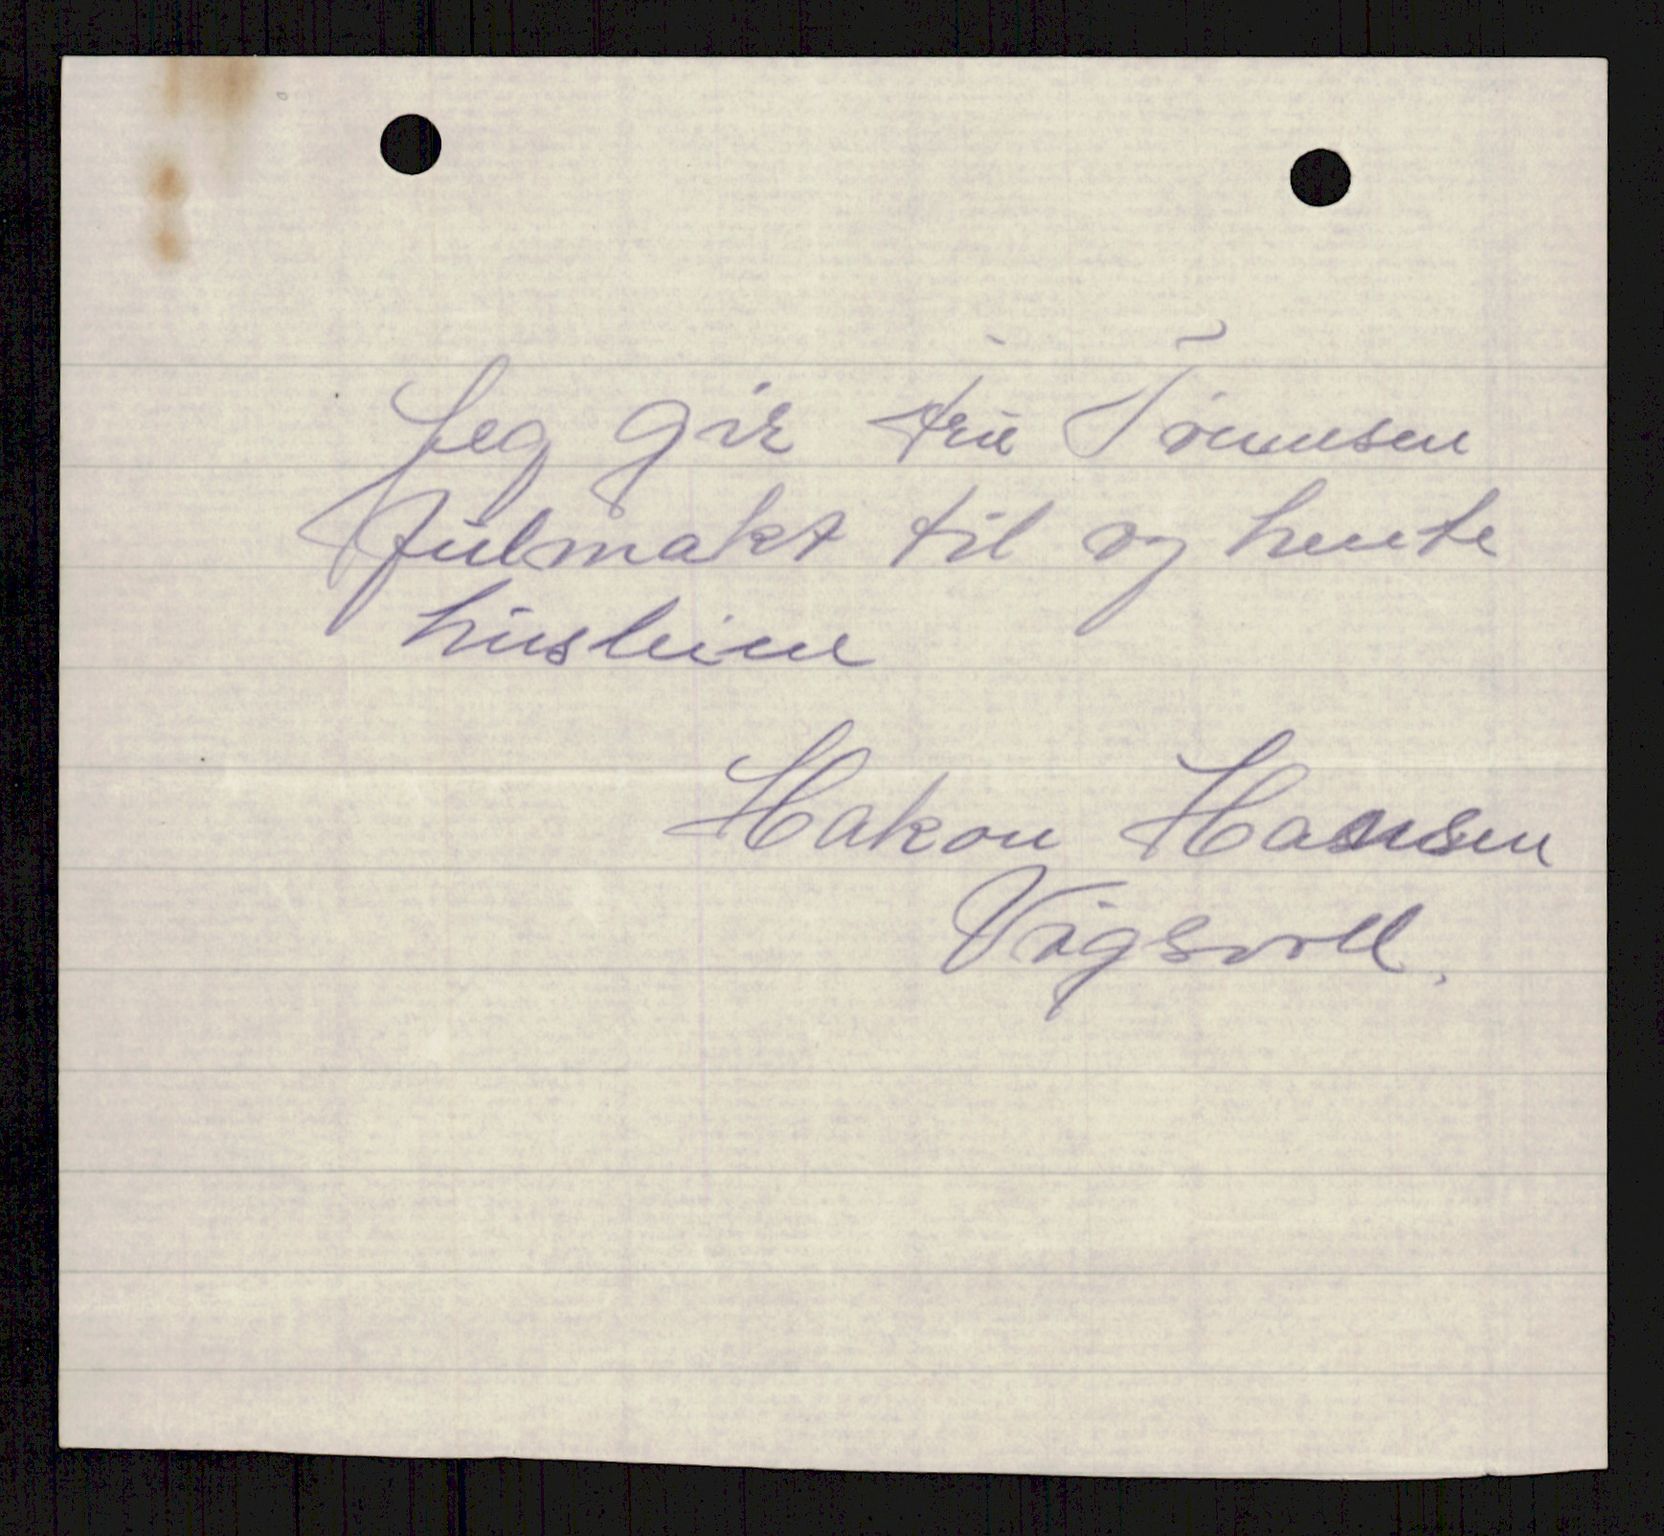 Jeg gir fru Tönnesen
fulmakt til og hente
husleiene
Hakon Hansen
Vigsvoll.